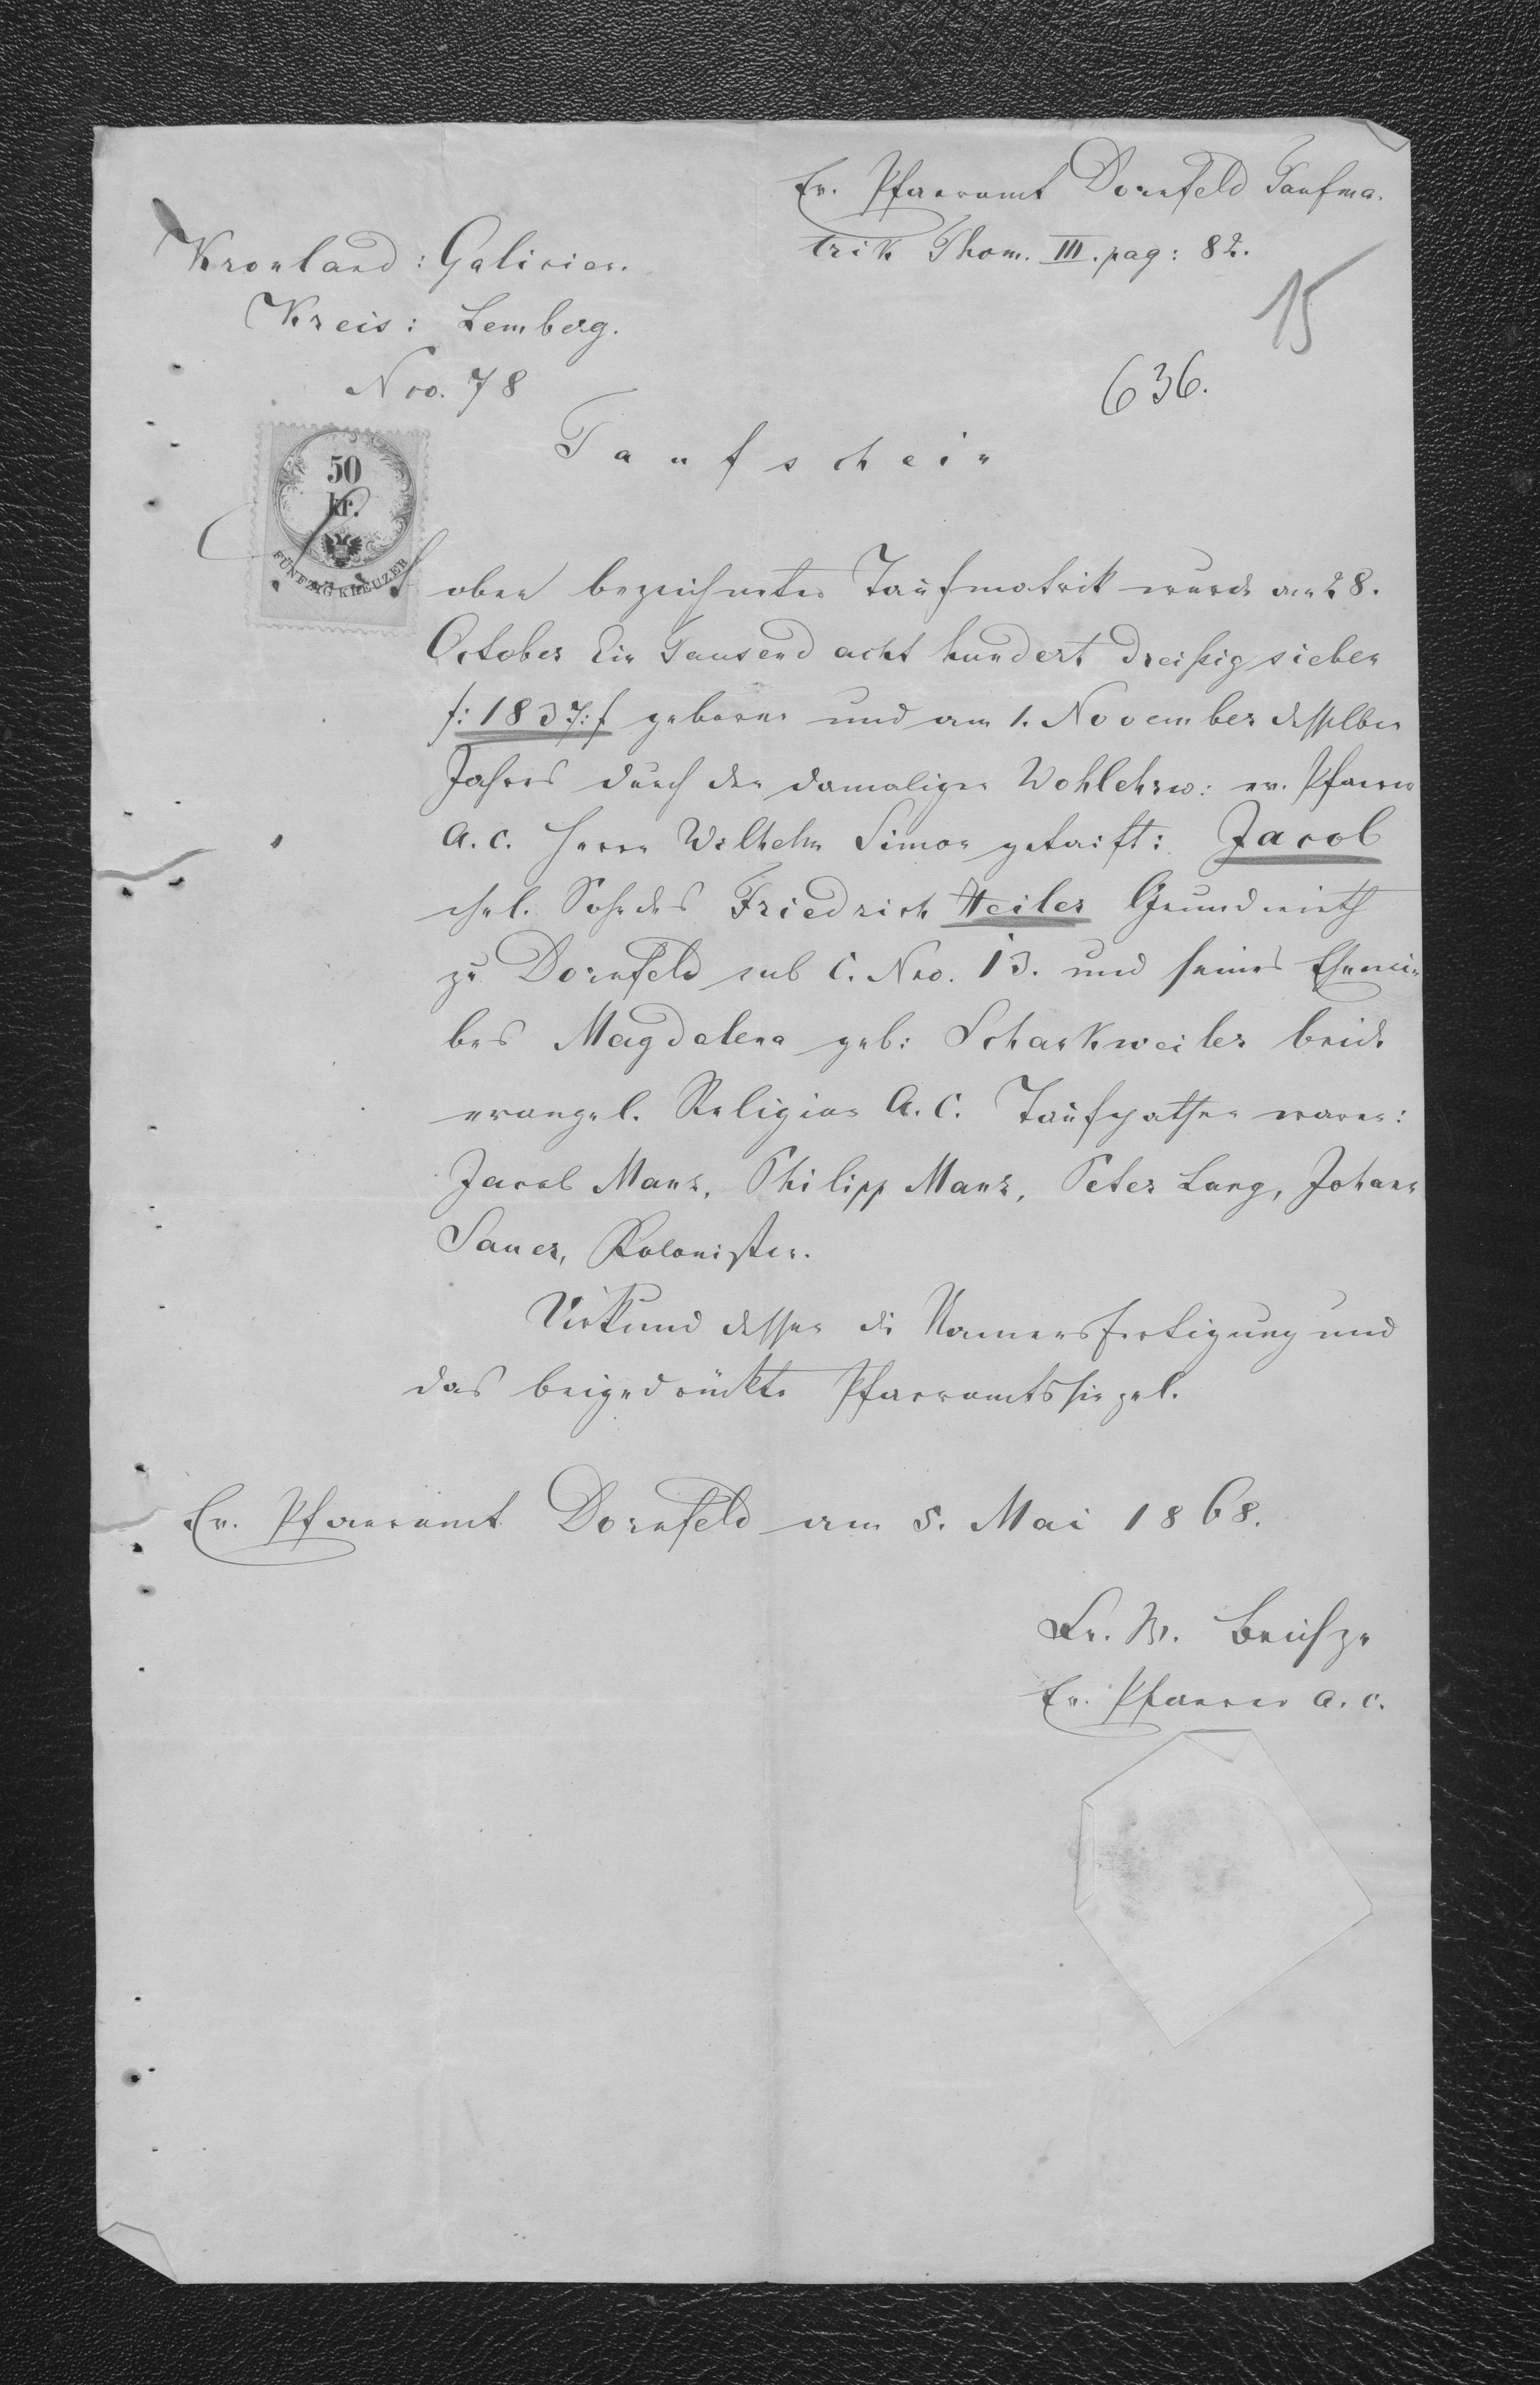 Ev. Pfarramt Dornfeld Taufma-
trik Thom. III. pag: 82.
Kronland: Galizien.
Kreis: Lemberg.
Nro. 78
15
636.
Taufschein
50
kr.
FÜNFZIG KREUZER
oben bezeichneter Taufmatrik wurde am 28.
October Ein Tausend acht hundert dreißig sieben
/: 1837 :/ geboren und am 1. November desselben
Jahres durch den damaligen Wohlehrw: ev. Pfarrer
A. C. Herrn Wilhelm Simon getauft: Jacob
ehel. Sohn des Friedrich Heiler Grundwirth
zu Dornfeld sub C. Nro. 13. und seines Ehewei-
bes Magdalena geb: Schankweiler beide
evangel. Religion A. C. Taufpathen waren:
Jacob Manz, Philipp Manz, Peter Lang, Johann
Sauer, Kolonisten.
Urkund dessen die Namensfertigung und
das beigedrückte Pfarramtssiegel.
Ev. Pfarramt Dornfeld am 5. Mai 1868.
Fr. W.
Ev. Pfarrer A. C.